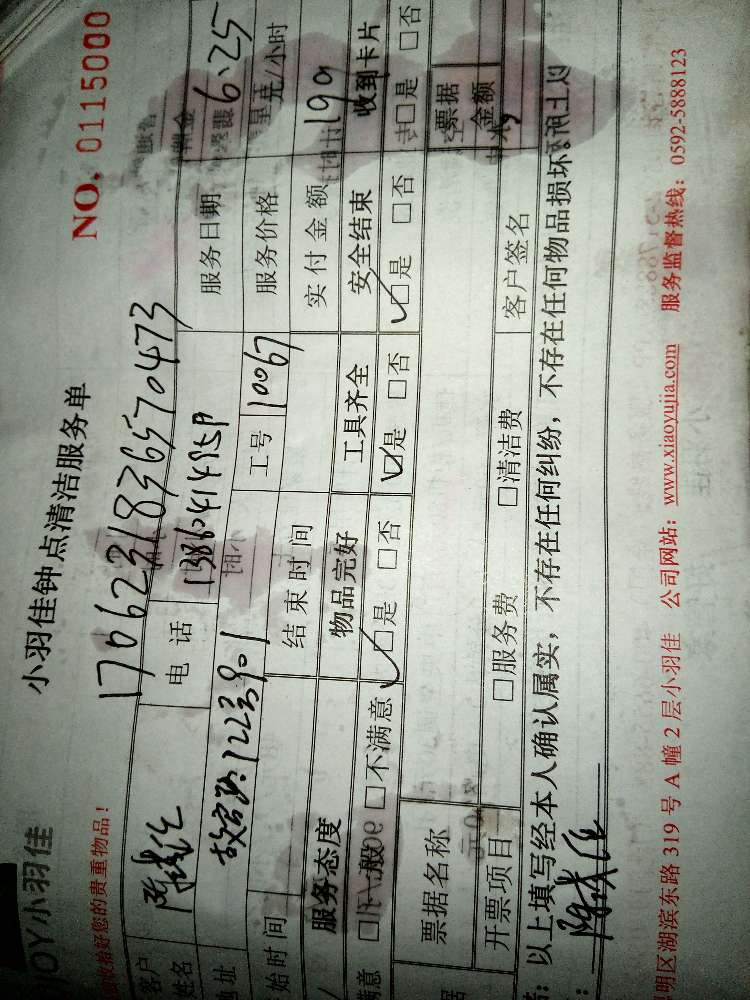 JOY小羽佳
小羽佳钟点清洁服务单
NO. 0115000
收拾好您的贵重物品!
1706231836570473
客户姓名 电话 服务日期 6.25
地址 1223号901 服务价格 元/小时
始时间 结束时间 工号 10067 实付金额 199
服务态度 物品完好 工具齐全 安全结束 收到卡片
满意 □一般 □不满意 ☑是 □否 ☑是 □否 ☑是 □否 □是 □否
票据名称 票据金额
开票项目 □服务费 □清洁费 客户签名
:以上填写经本人确认属实,不存在任何纠纷,不存在任何物品损坏。
明区湖滨东路 319 号 A 幢 2 层小羽佳 公司网站:www.xiaoyujia.com 服务监督热线:0592-5888123